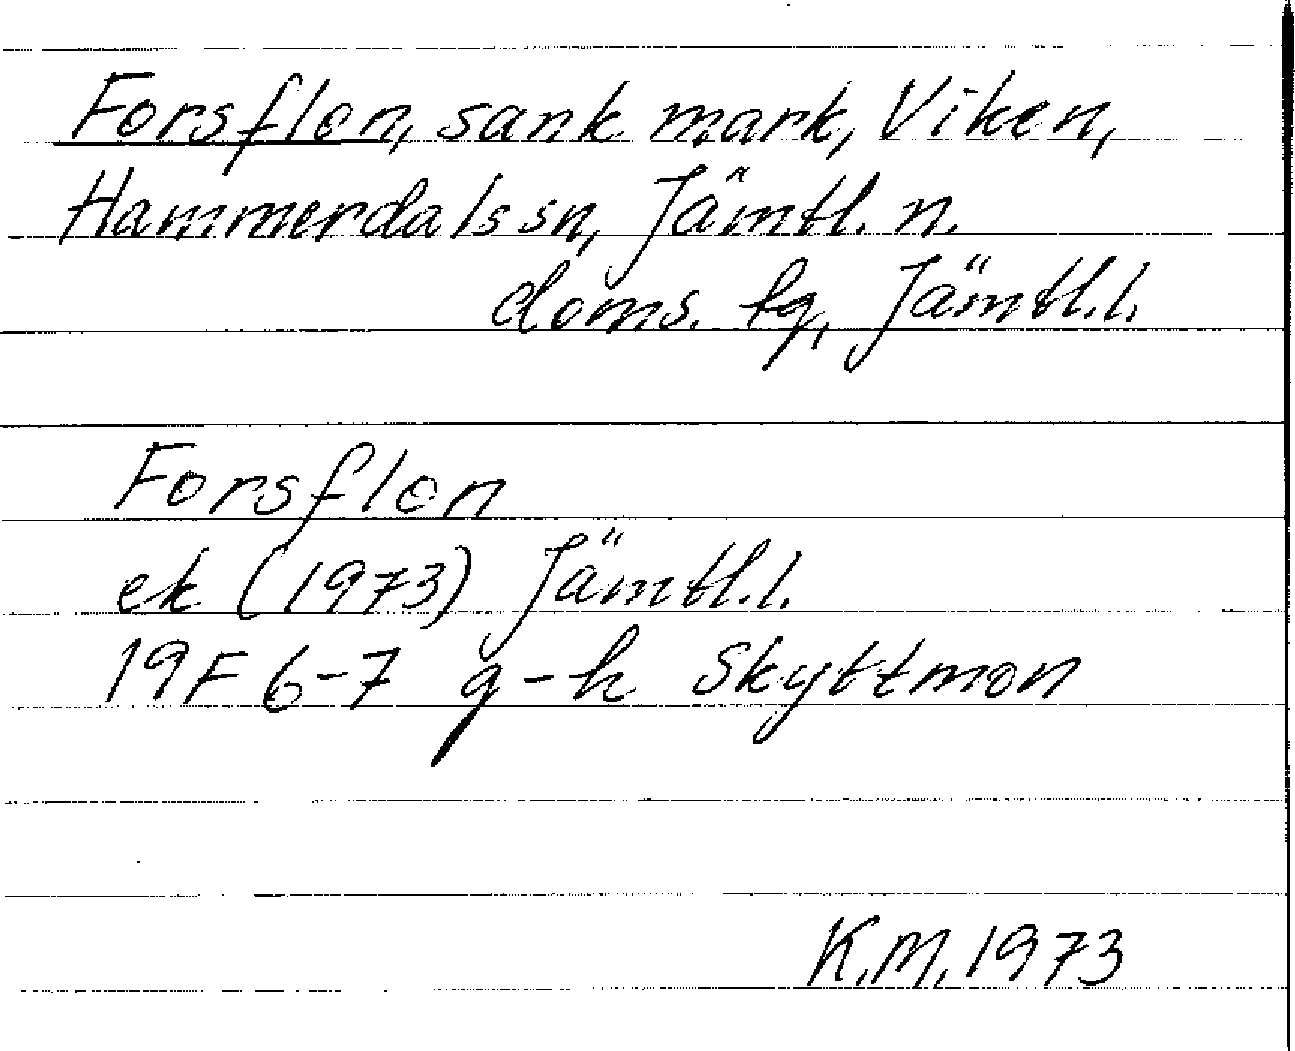 Forsflon, sank mark, Viken,
Hammerdals sn, Jämtl. n.
doms. tg, Jämtl.l.
Forsflon
ek (1973) Jämtl.l.
19F 6-7 g-h Skyttmon
K.M. 1973